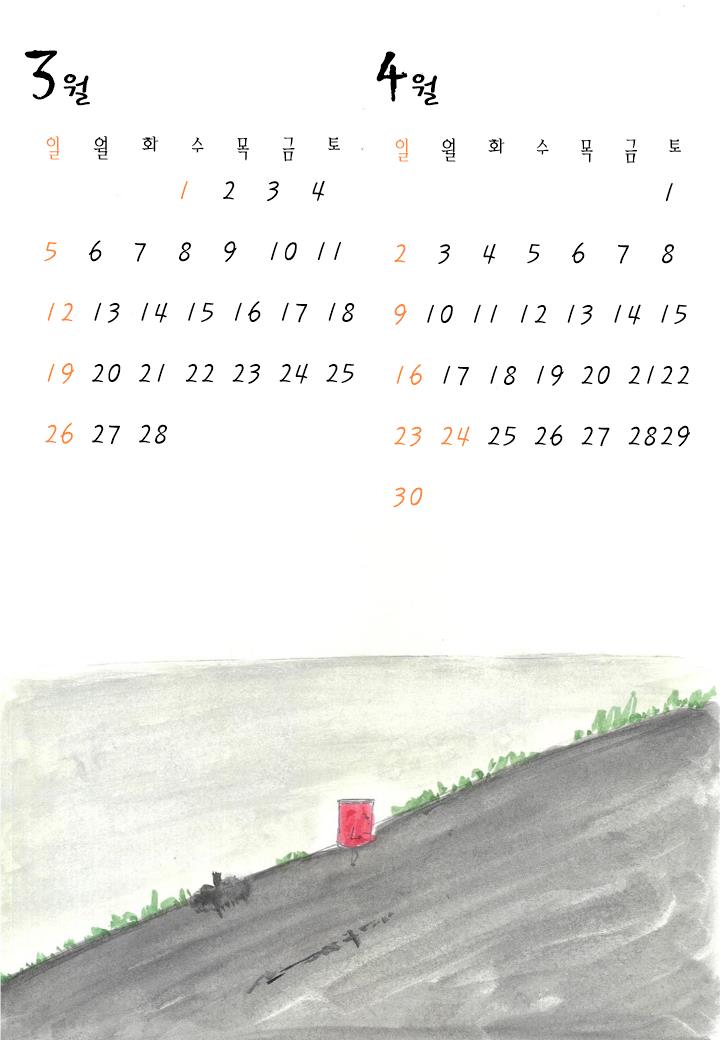 3월
일 월 화 수 목 금 토
1 2 3 4
5 6 7 8 9 10 11
12 13 14 15 16 17 18
19 20 21 22 23 24 25
26 27 28
4월
일 월 화 수 목 금 토
1
2 3 4 5 6 7 8
9 10 11 12 13 14 15
16 17 18 19 20 21 22
23 24 25 26 27 28 29
30